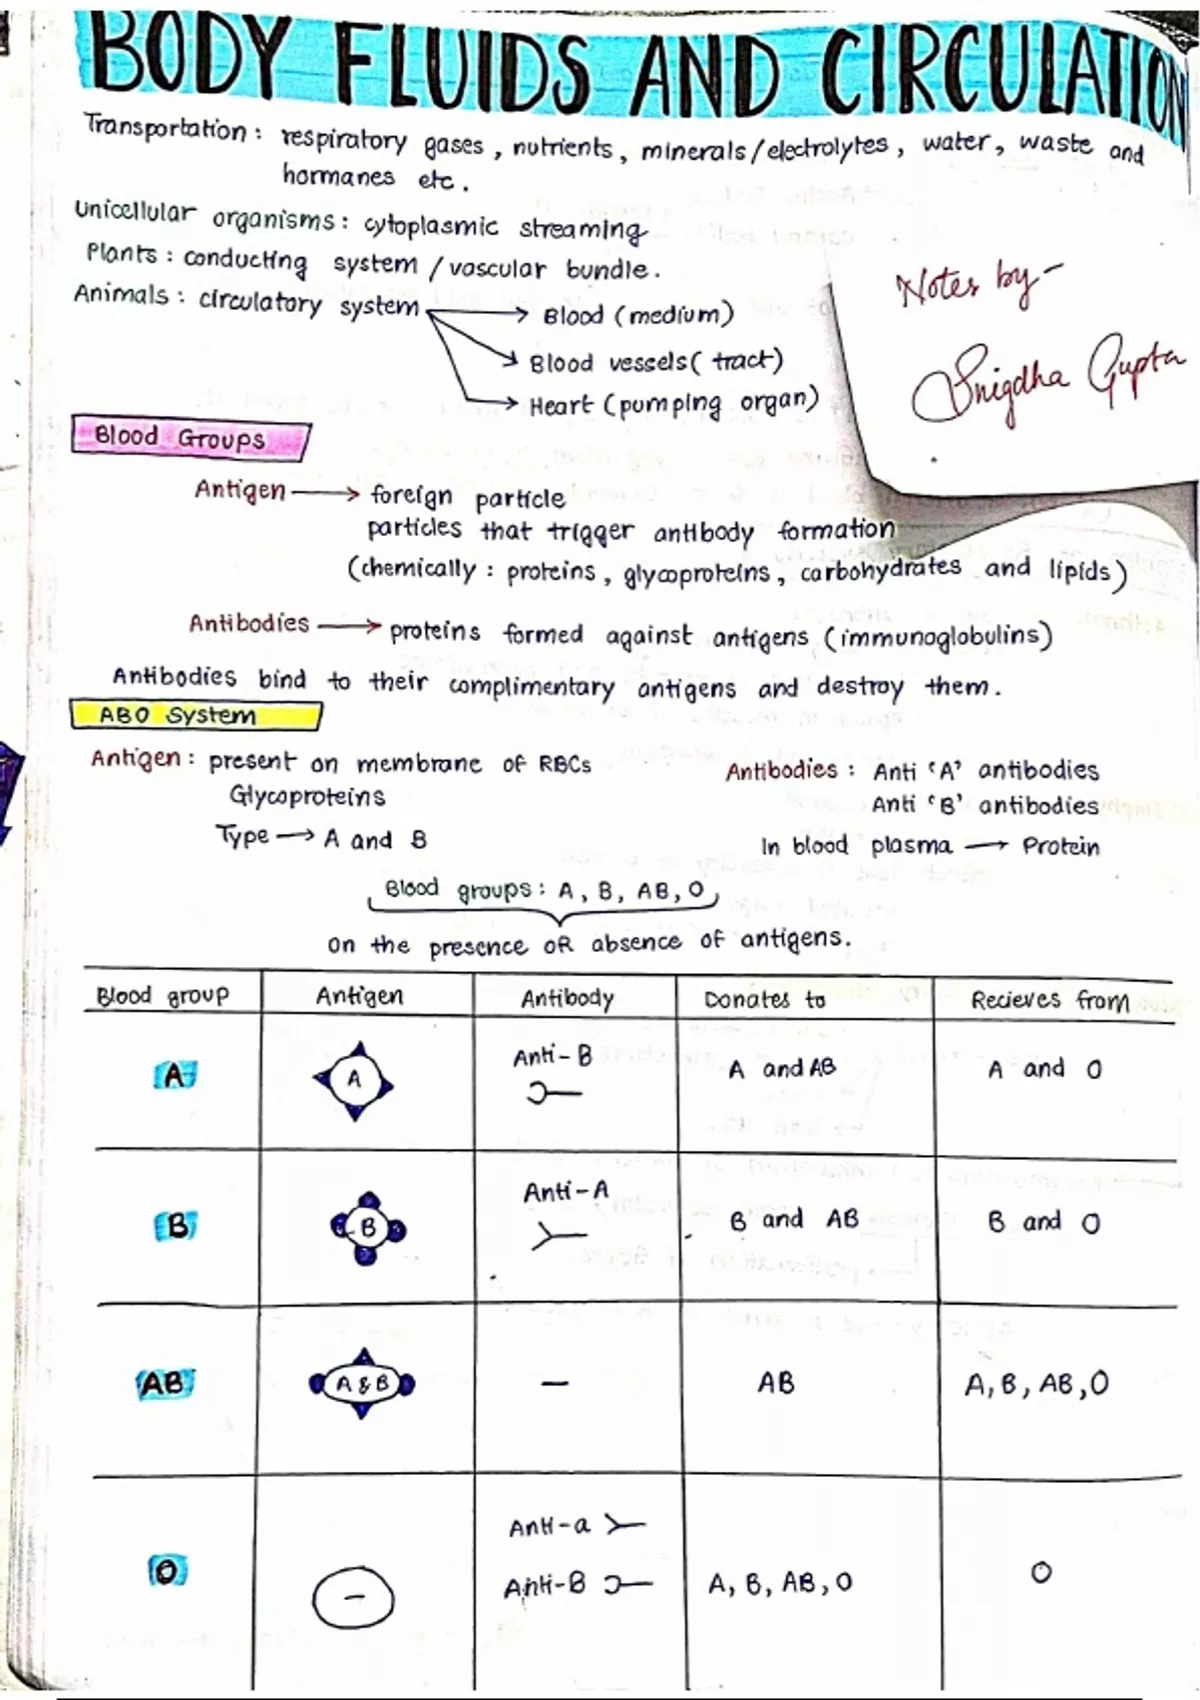 BODY FLUIDS AND CIRCULATION
Transportation : respiratory gases , nutrients , minerals/electrolytes , water , waste and
hormanes etc .
Unicellular organisms : cytoplasmic streaming
Plants : conducting system / vascular bundle .
Animals : circulatory system → Blood (medium)
→ Blood vessels ( tract)
→ Heart (pumping organ)
Notes by -
Snigdha Gupta
Blood Groups
Antigen → foreign particle
particles that trigger antibody formation
(chemically : proteins , glycoproteins , carbohydrates and lipids)
Antibodies → proteins formed against antigens (immunoglobulins)
Antibodies bind to their complimentary antigens and destroy them .
ABO System
Antigen : present on membrane of RBCs
Glycoproteins
Type → A and B
Antibodies : Anti 'A' antibodies
Anti 'B' antibodies
In blood plasma → Protein
Blood groups : A , B , AB , O
on the presence oR absence of antigens .
Blood group Antigen Antibody Donates to Recieves from
A A Anti - B A and AB A and O
B B Anti - A B and AB B and O
AB A & B — AB A , B , AB , O
O - Anti - a A , B , AB , O O
Anti - B